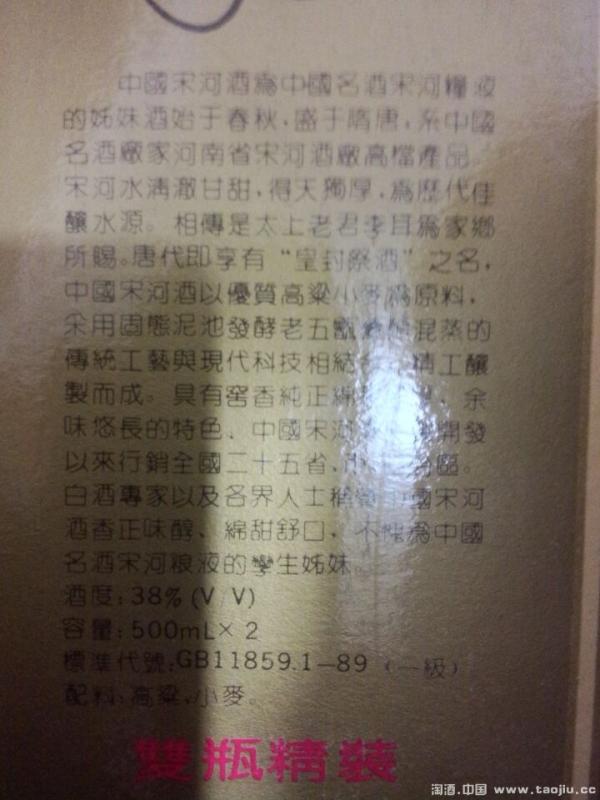 中國宋河酒為中國名酒宋河糧液
的姊妹酒始于春秋,盛于隋唐,系中國
名酒廠家河南省宋河酒廠高檔產品。
宋河水清澈甘甜,得天獨厚,為歷代佳
釀水源。相傳是太上老君李耳為家鄉
所賜。唐代即享有“皇封祭酒”之名,
中國宋河酒以優質高粱小麥為原料,
采用固態泥池發酵老五甑 混蒸的
傳統工藝與現代科技相結 精工釀
製而成。具有窖香純正綿 余
味悠長的特色、中國宋河 開發
以來行銷全國二十五省、市 區。
白酒專家以及各界人士稱 中國宋河
酒香正味醇、綿甜舒口、不愧為中國
名酒宋河粮液的孿生姊妹。
酒度:38%(V/V)
容量:500mL×2
標準代號:GB11859.1-89(一級)
配料:高粱,小麥。
雙瓶精裝
淘酒.中国 www.taojiu.cc